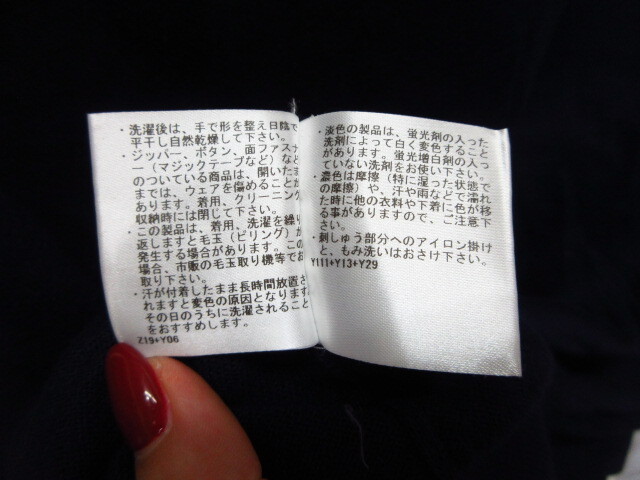 ・洗濯後は、手で形を整え日陰で
平干し自然乾燥して下さい。
・ジッパー、ボタン、面ファスナ
ー（マジックテープなど）など
のついている商品は、開いたま
までは、ウェアを傷めることが
あります。着用、クリーニング
収納時には閉じて下さい。
・この製品は、着用、洗濯を繰り
返しますと毛玉（ピリング）が
発生する場合があります。この
場合、市販の毛玉取り機等でお
取り下さい。
・汗が付着したまま長時間放置さ
れますと変色の原因となります
その日のうちに洗濯されること
をおすすめします。
Z19+Y06
・淡色の製品は、蛍光剤の入った
洗剤によって白く変色すること
があります。蛍光増白剤の入っ
ていない洗剤をお使い下さい。
・濃色は摩擦（特に湿った状態で
の摩擦）や、汗や雨などで濡れ
た時に他の衣料や下着に色が移
る事がありますので、ご注意下
さい。
・刺しゅう部分へのアイロン掛け
と、もみ洗いはおさけ下さい。
Y111+Y13+Y29